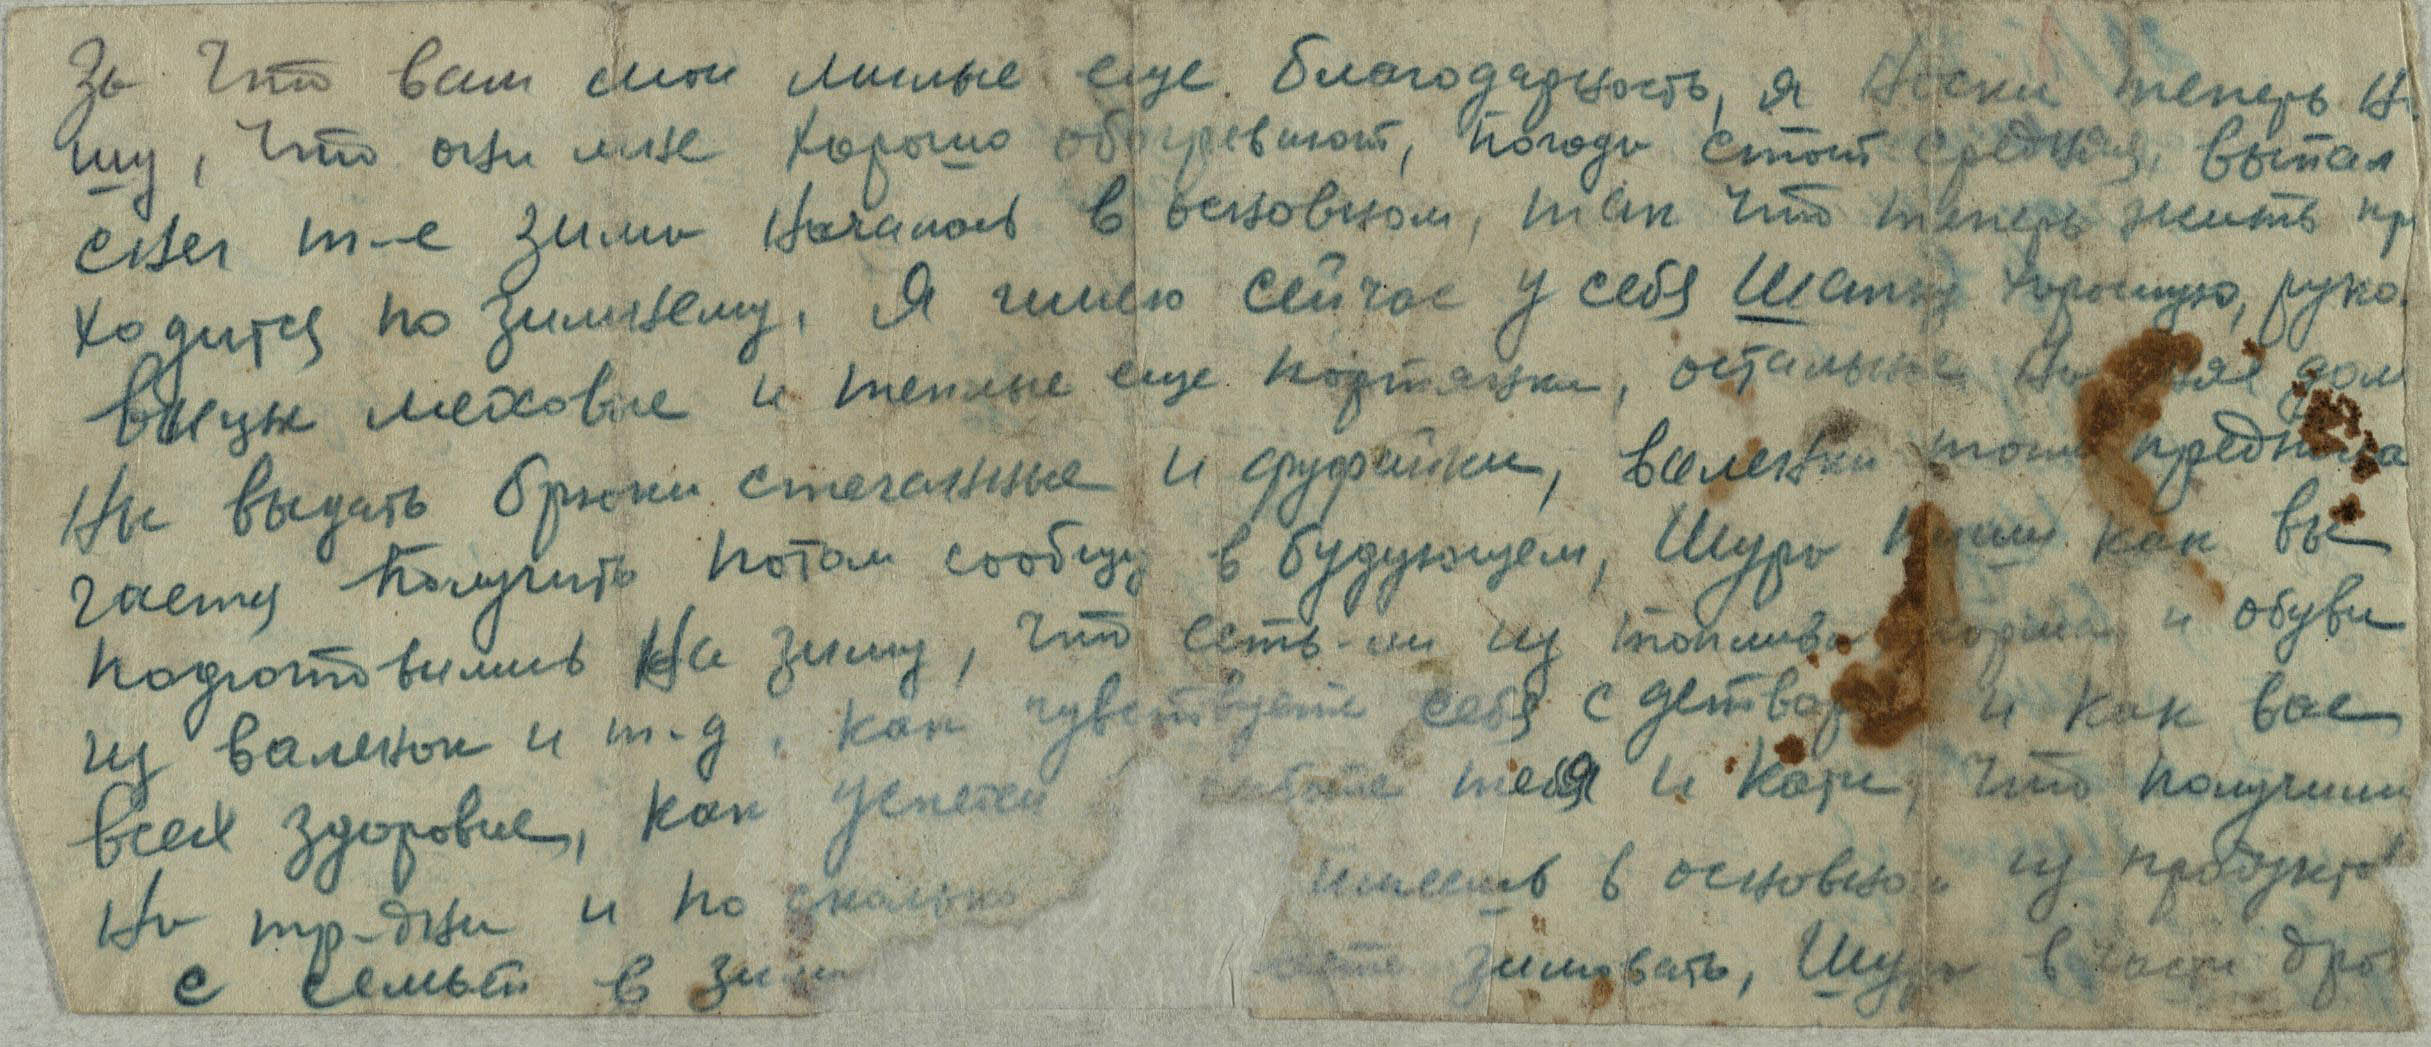 За что вам мои милые еще благодарность, я носки теперь но
шу, что они мне хорошо обогревают, погода стоит средняя, выпал
снег т-е зима началась в основном, так что теперь жить при
ходится по зимнему. Я имею сейчас у себя шапку хорошую, рука
вицы меховые и теплые еще портянки, остальные дол
ны выдать брюки стеганные и фуфайки, валенки тоже
гается получить потом сообщу в будующем, Шура пиши как вы
подготовились на зиму, что есть-ли из топлива корма и обуви
из валенок и т-д, как чувствуете себя с детварой и как вас
всех здоровие, как успехи работе тебя и Кати, что получили
на тр-дни и по сколько в основном из продуктов
с семьей в зиму зимовать, Шура в части дров